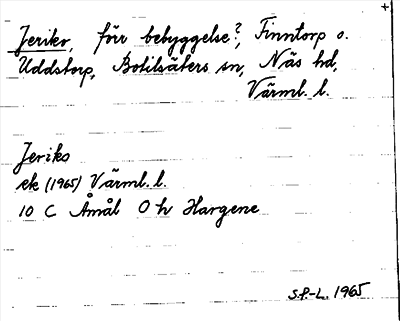 Jeriko, förr bebyggelse?, Finntorp o.
Uddstorp, Botilsäters sn, Näs hd,
Värml. l.
Jeriko
ek (1965) Värml. l.
10 C Åmål O h Hargene
S.P.-L. 1965